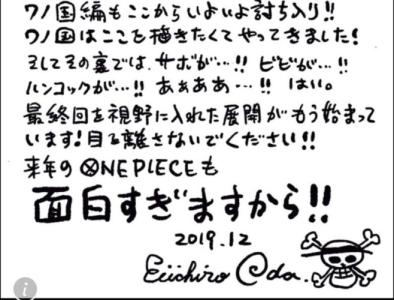 ワノ国編もここからいよいよ討ち入り!!
ワノ国はここを描きたくてやってきました!
そしてその裏では、サボが…!! ビビが…!!
ハンコックが…!! あぁあぁ…!! はい。
最終回を視野に入れた展開がもう始まって
います!目を離さないでください!!
来年のONE PIECEも
面白すぎますから!!
2019.12
Eiichiro Oda.